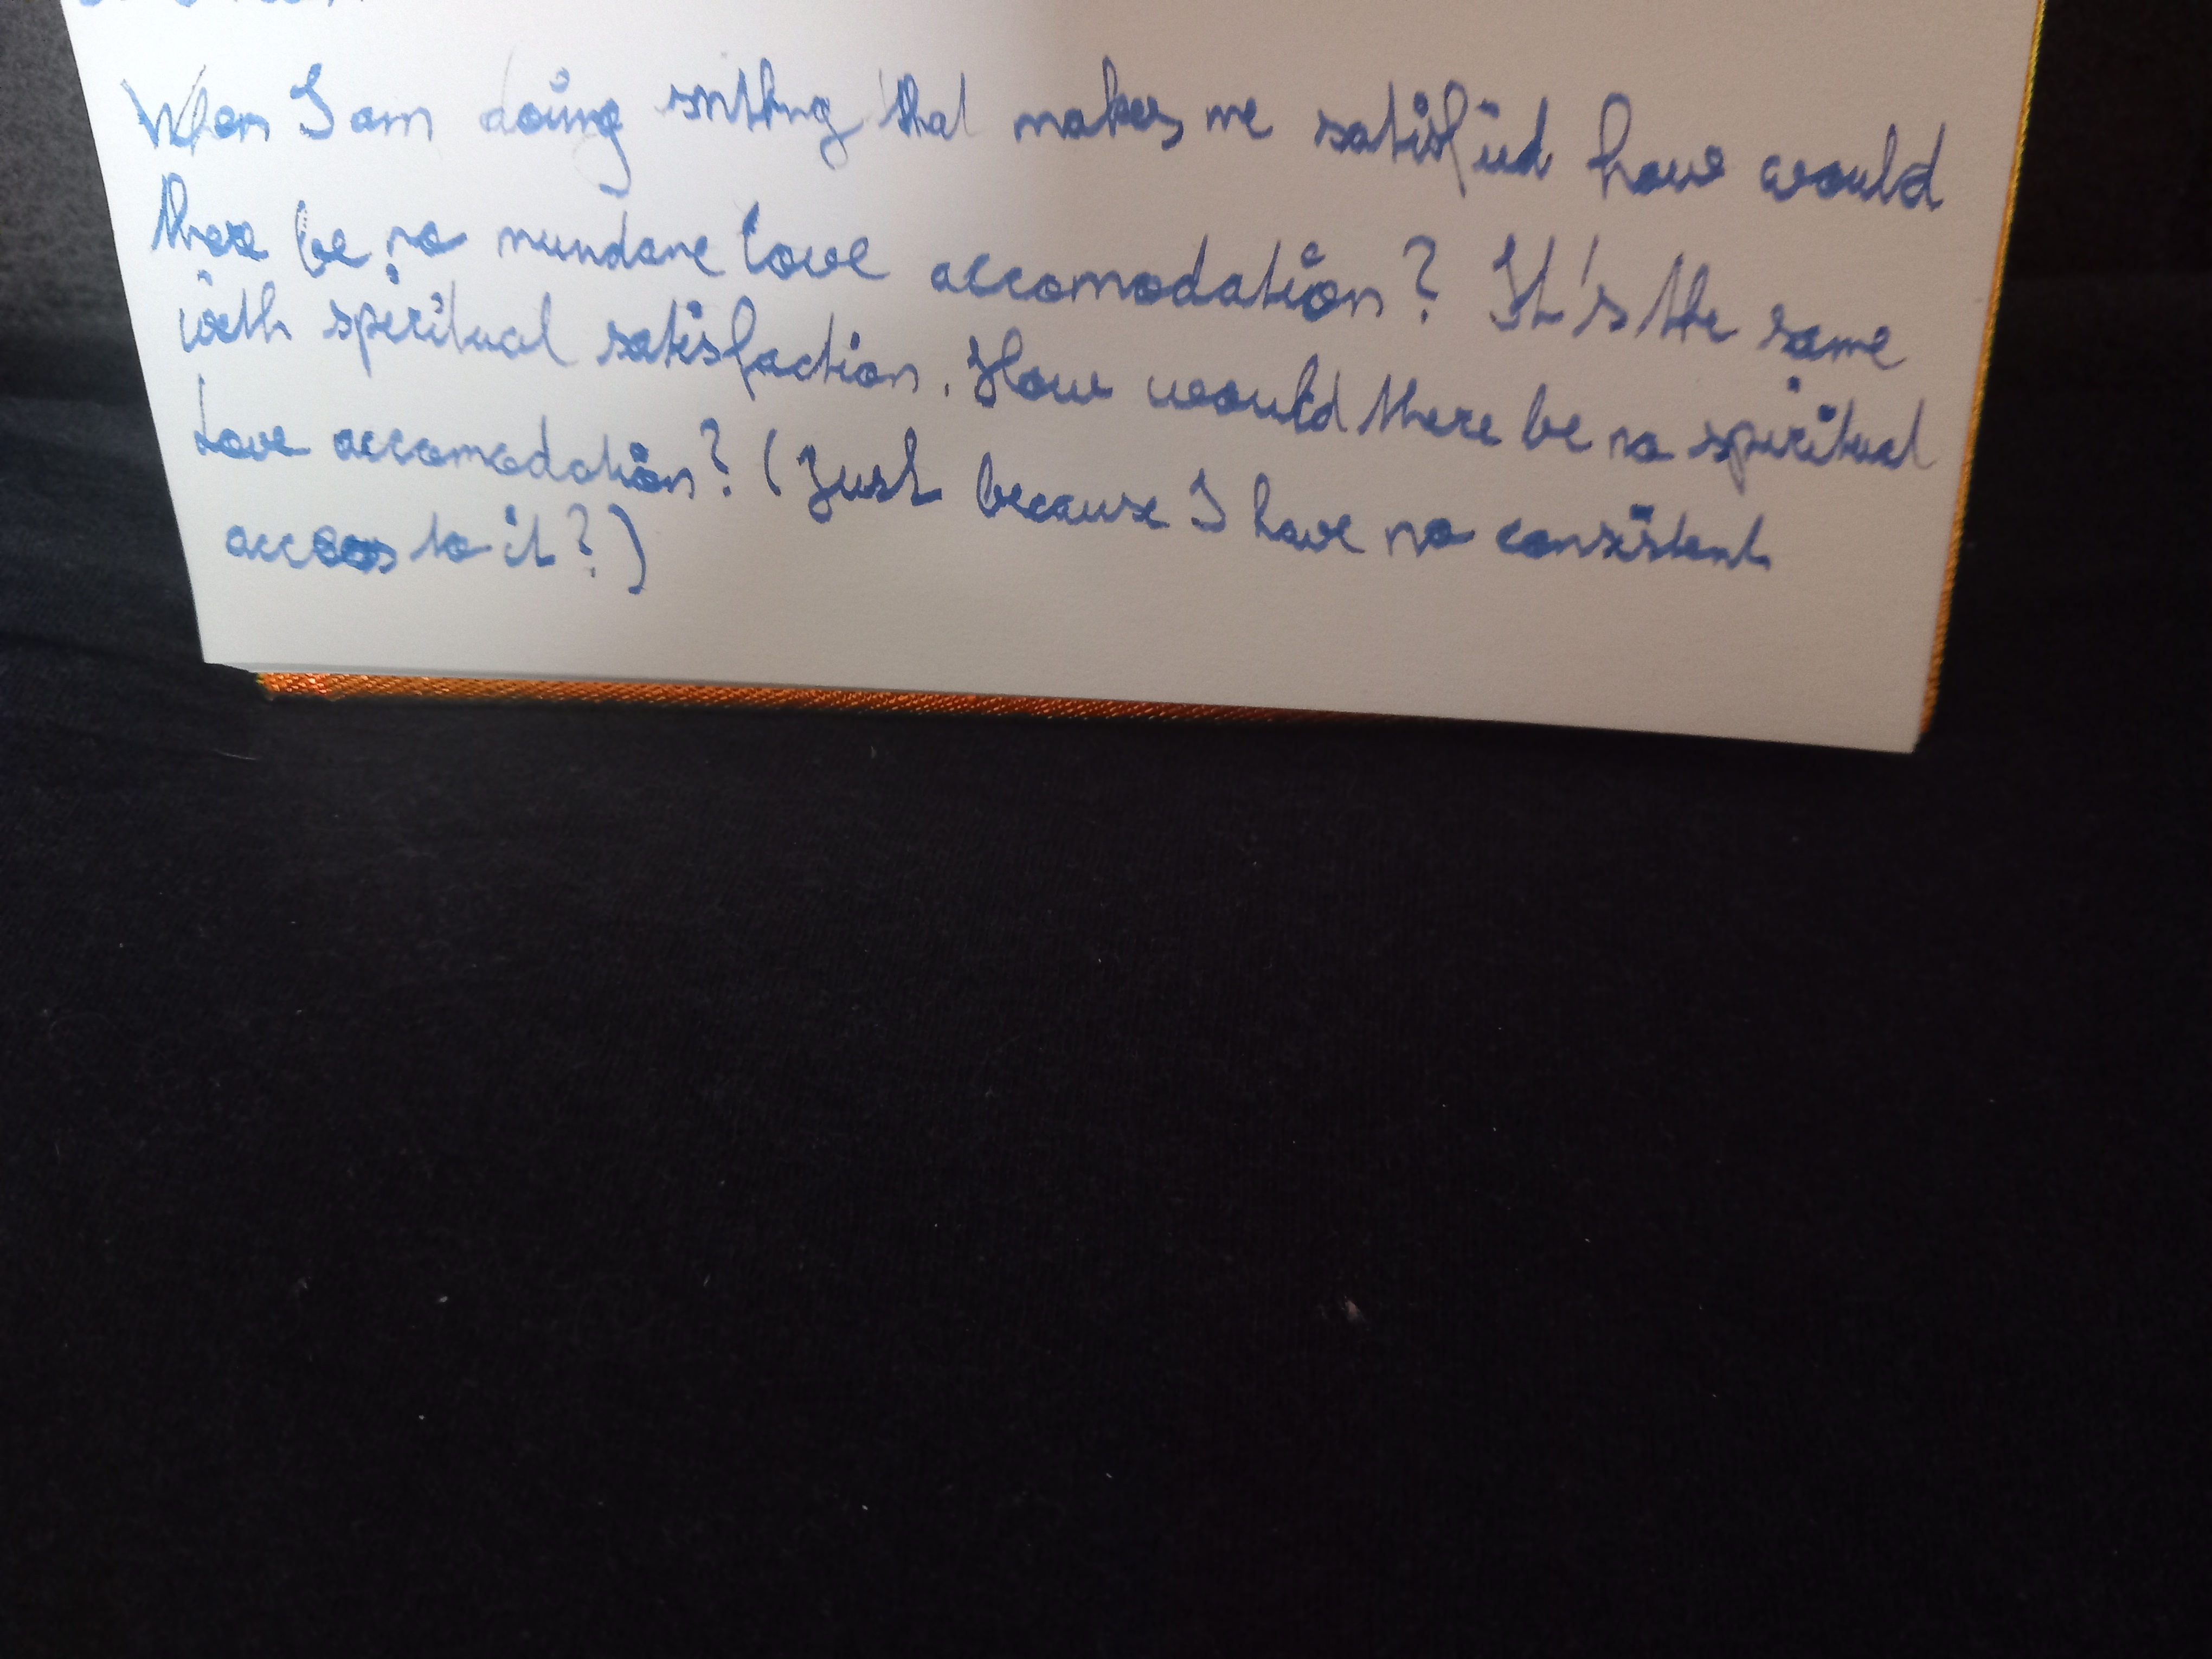 When I am doing smthng that makes me satisfied how would
there be no mundane love accomodation? It's the same
with spiritual satisfaction. How would there be no spiritual
Love accomodation? (Just because I have no consistent
access to it?)